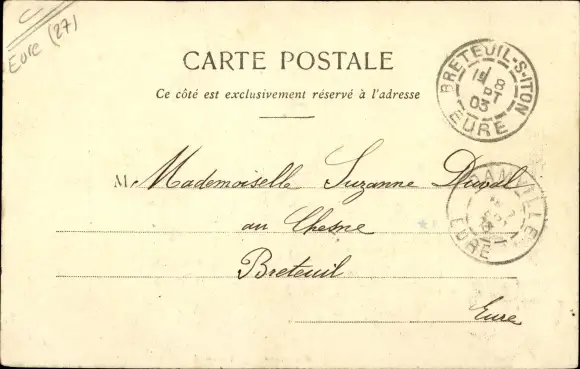 Eure (27)
CARTE POSTALE
Ce côté est exclusivement réservé à l'adresse
BRETEUIL-S-ITON
8
03
EURE
M Mademoiselle Suzanne Duval
au Chesne
Breteuil
Eure
DAMVILLE
EURE